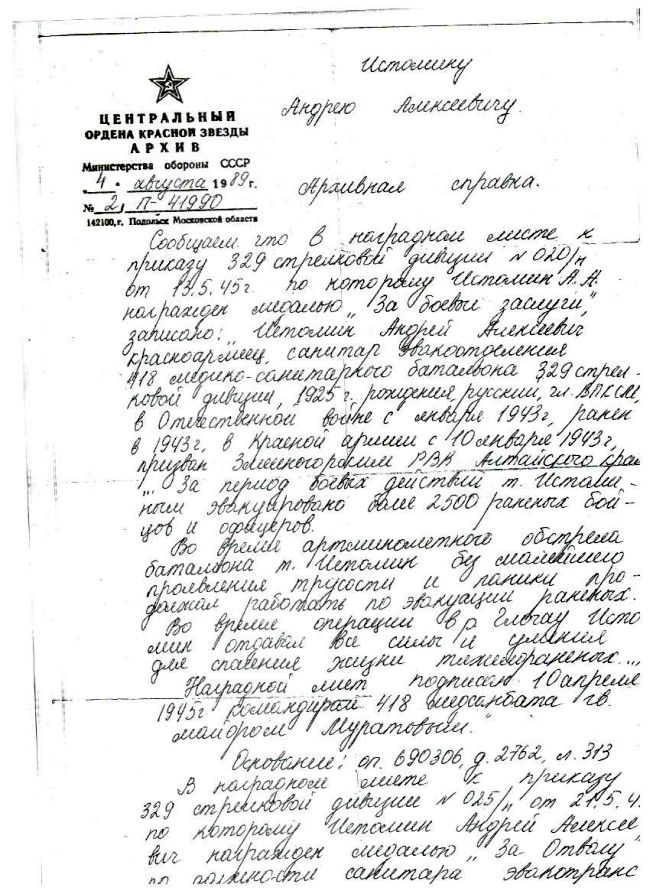 Истомину
Андрею Алексеевичу.
ЦЕНТРАЛЬНЫЙ
ОРДЕНА КРАСНОЙ ЗВЕЗДЫ
АРХИВ
Министерства обороны СССР
„4“ августа 1989 г.
№ 2, П-41990
142100, г. Подольск Московской области
Архивная справка.
Сообщаем что в наградном листе к
приказу 329 стрелковой дивизии N 020/н
от 13.5.45г. по которому Истомин А.А.
награжден медалью „За боевые заслуги“,
записано: „Истомин Андрей Алексеевич
красноармеец, санитар эвакоотделения
418 медико-санитарного баталвона 329 стрел-
ковой дивизии, 1925г. рождения, русский, чл. ВЛКСМ,
в Отечественной войне с января 1943г, ранен
в 1943г, в Красной армии с 10 января 1943г,
призван Змеиногорским РВК Алтайского края
„... За период боевых действий т. Истоми-
ным эвакуировано более 2500 раненых бой-
цов и офицеров.
Во время артминометного обстрела
баталвона т. Истомин без малейшего
проявления трусости и паники про-
должал работать по эвакуации раненых.
Во время операции в р. Глогау Исто
мин отдавал все силы и умения
для спасения жизни тяжелораненых...„
Наградной лист подписан 10 апреля
1945г. командиром 418 медсанбата гв.
майором Муратовым.“
Основание: оп. 690306, д. 2762, л. 313
В наградном листе к приказу
329 стрелковой дивизии N 025/н от 21.5.4.
по которому Истомин Андрей Алексее
вич награжден медалью „За Отвагу“
по должности санитара эвакотранс